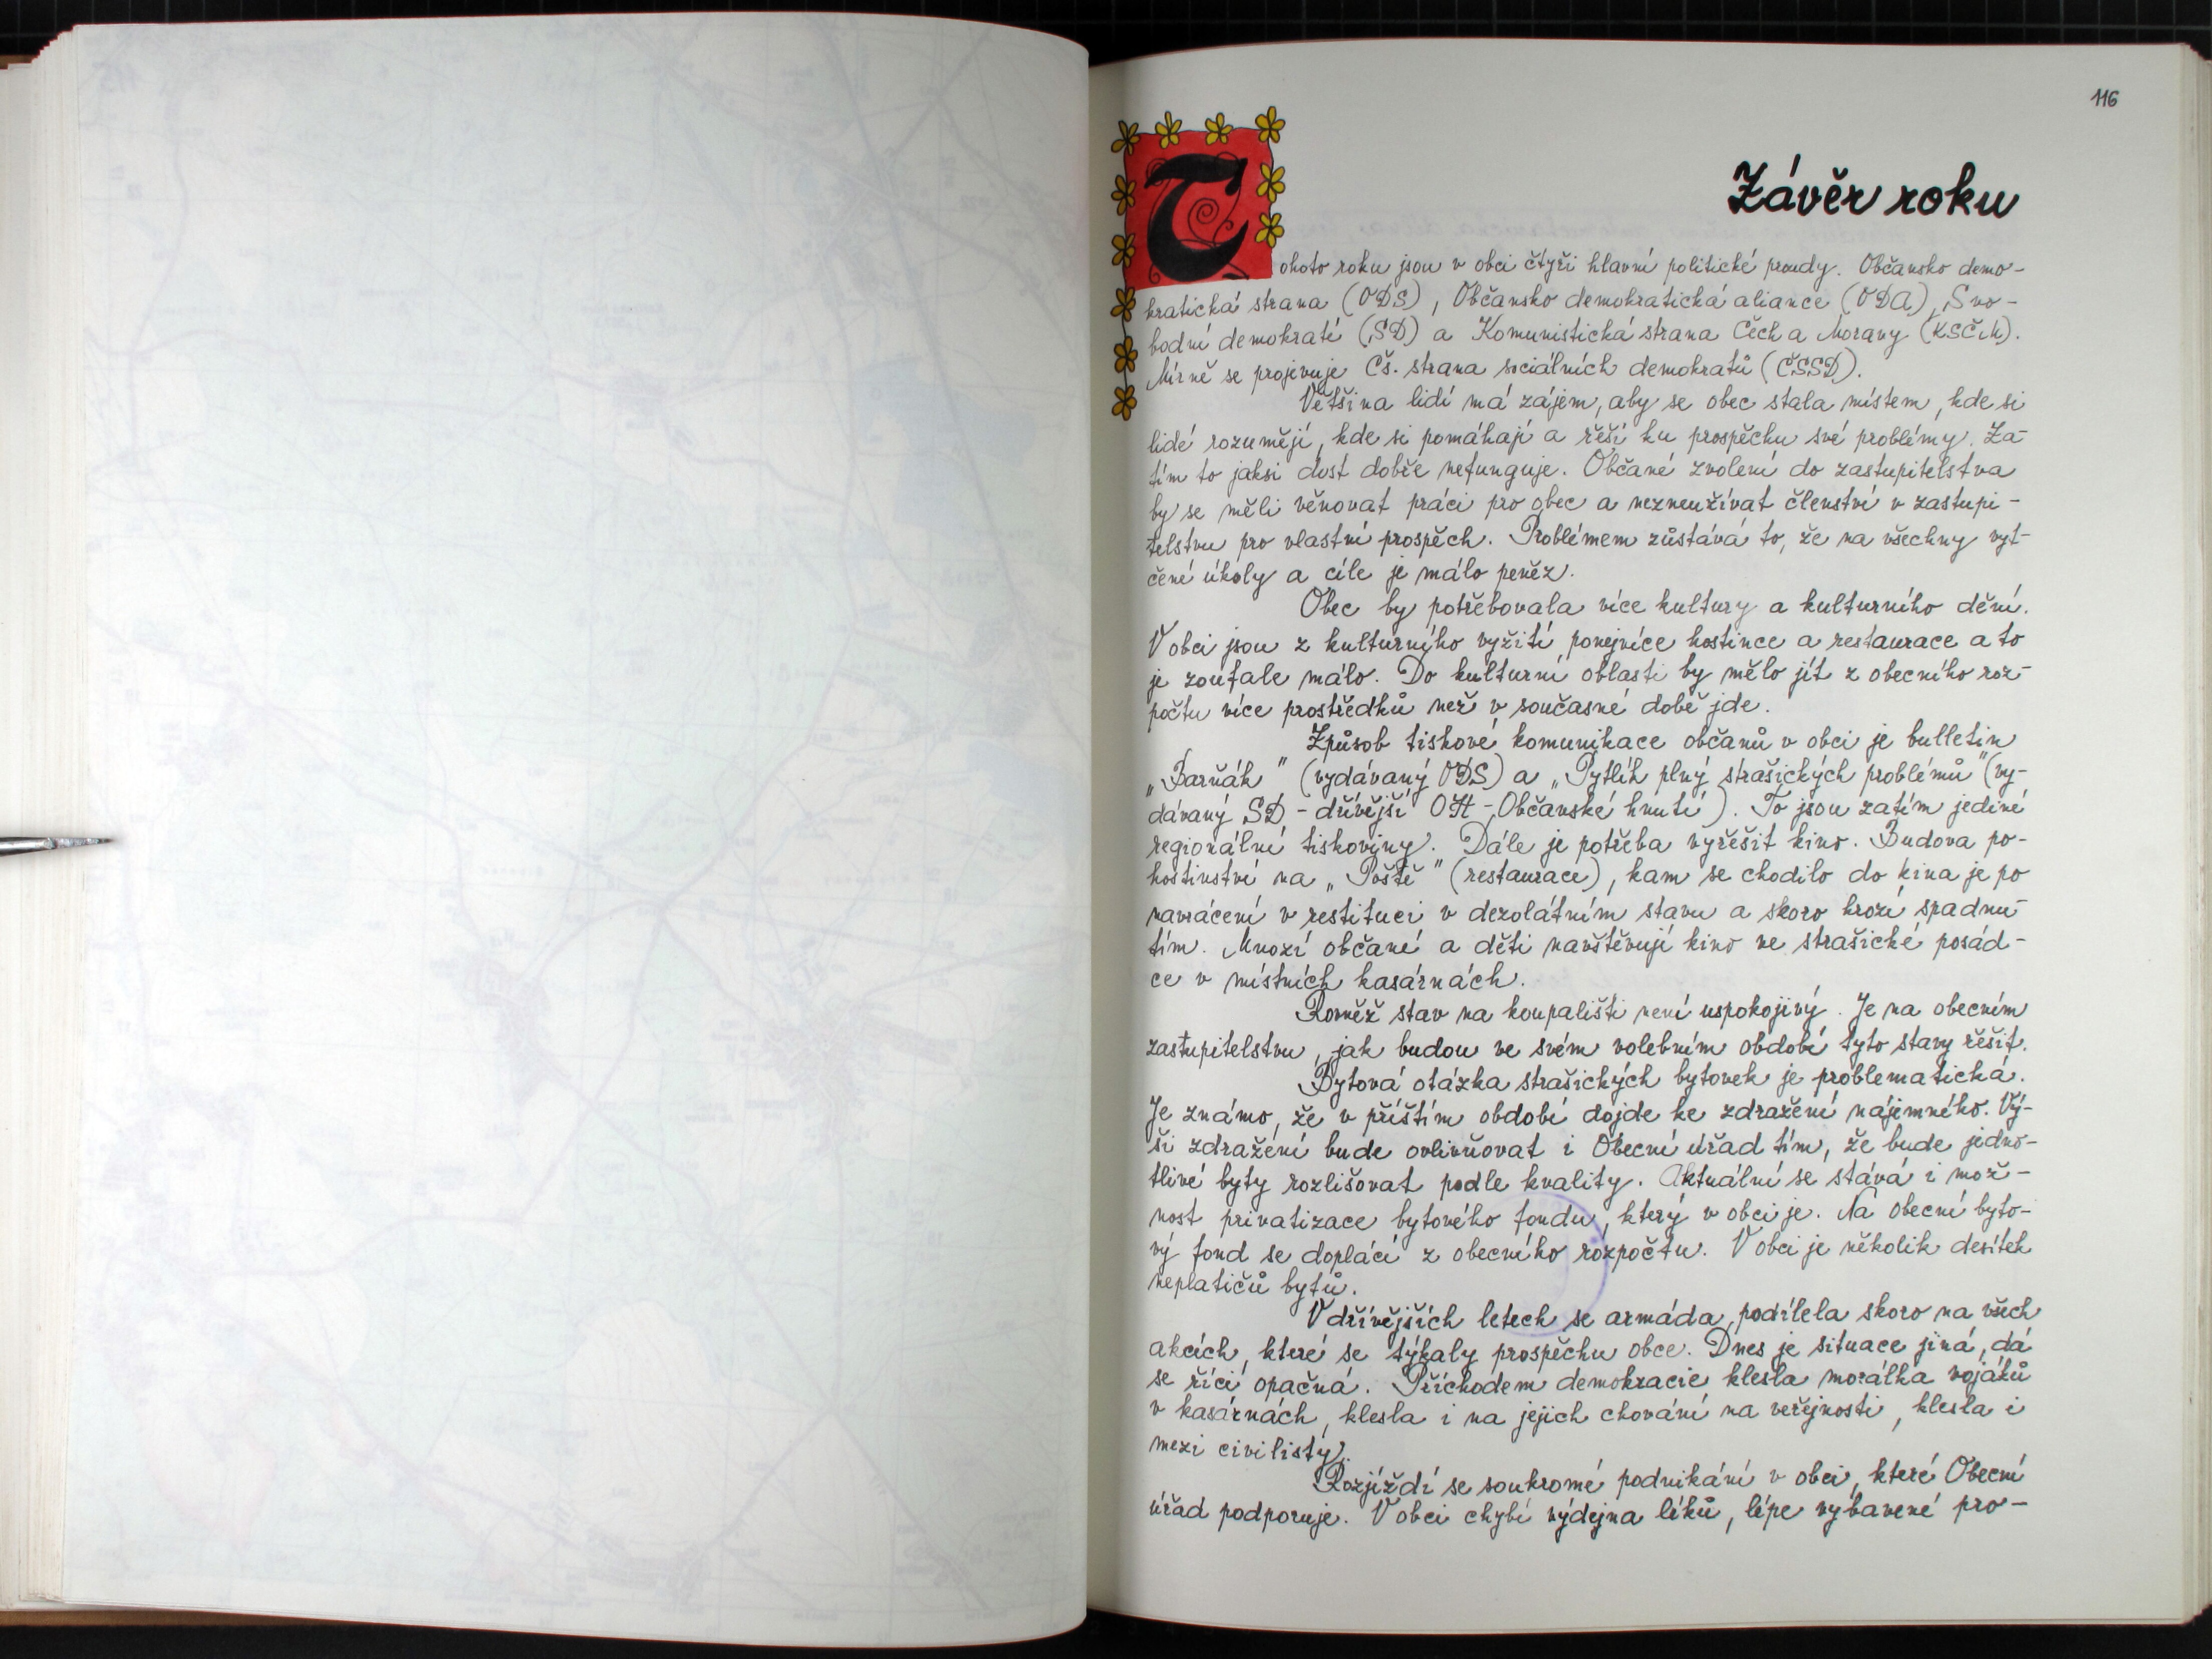 116
Závěr roku
Tohoto roku jsou v obci čtyři hlavní politické proudy. Občansko demo-
kratická strana (ODS), Občansko demokratická aliance (ODA), Svo-
bodní demokraté (SD) a Komunistická strana Čech a Moravy (KSČM).
Mírně se projevuje Čs. strana sociálních demokratů (ČSSD).
Většina lidí má zájem, aby se obec stala místem, kde si
lidé rozumějí, kde si pomáhají a řeší ku prospěchu své problémy. Za-
tím to jaksi dost dobře nefunguje. Občané zvolení do zastupitelstva
by se měli věnovat práci pro obec a nezneužívat členství v zastupi-
telstvu pro vlastní prospěch. Problémem zůstává to, že na všechny vyt-
čené úkoly a cíle je málo peněz.
Obec by potřebovala více kultury a kulturního dění.
V obci jsou z kulturního vyžití ponejvíce hostince a restaurace a to
je zoufale málo. Do kulturní oblasti by mělo jít z obecního roz-
počtu více prostředků než v současné době jde.
Způsob tiskové komunikace občanů v obci je bulletin
„Barňák" (vydávaný ODS) a „Pytlík plný strašických problémů" (vy-
dávaný SD - dřívější OH - Občanské hnutí). To jsou zatím jediné
regionální tiskoviny. Dále je potřeba vyřešit kino. Budova po-
hostinství na „Poště" (restaurace), kam se chodilo do kina je po
navrácení v restituci v dezolátním stavu a skoro hrozí spadnu-
tím. Mnozí občané a děti navštěvují kino ve strašické posád-
ce v místních kasárnách.
Rovněž stav na koupališti není uspokojivý. Je na obecním
zastupitelstvu, jak budou ve svém volebním období tyto stavy řešit.
Bytová otázka strašických bytovek je problematická.
Je známo, že v příštím období dojde ke zdražení nájemného. Vý-
ši zdražení bude ovlivňovat i Obecní úřad tím, že bude jedno-
tlivé byty rozlišovat podle kvality. Aktuální se stává i mož-
nost privatizace bytového fondu, který v obci je. Na obecní byto-
vý fond se doplácí z obecního rozpočtu. V obci je několik desítek
neplatičů bytů.
V dřívějších letech se armáda podílela skoro na všech
akcích, které se týkaly prospěchu obce. Dnes je situace jiná, dá
se říci opačná. Příchodem demokracie klesla morálka vojáků
v kasárnách, klesla i na jejich chování na veřejnosti, klesla i
mezi civilisty.
Rozjíždí se soukromé podnikání v obci, které Obecní
úřad podporuje. V obci chybí výdejna léků, lépe vybavené pro-